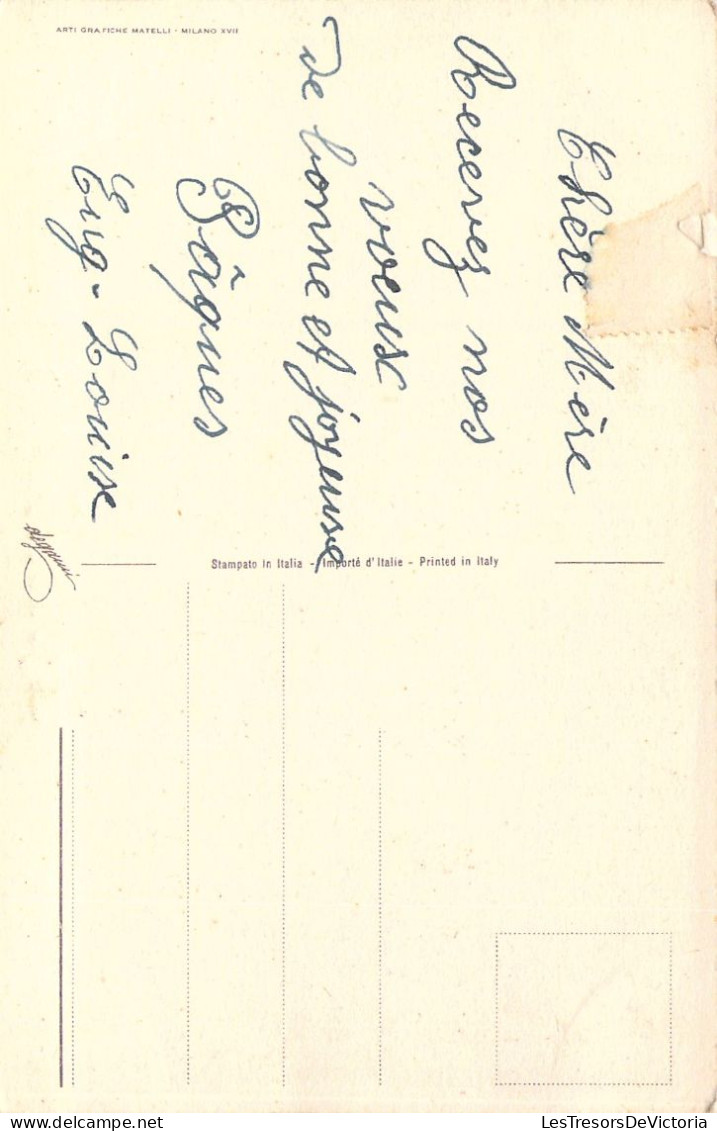 Chère Mère
Recevez nos
voeux
de bonne et joyeuse
Pâques
Eug - Louise
ARTI GRAFICHE MATELLI - MILANO XVII
Stampato in Italia - Importé d'Italie - Printed in Italy
degami
LesTresorsDeVictoria